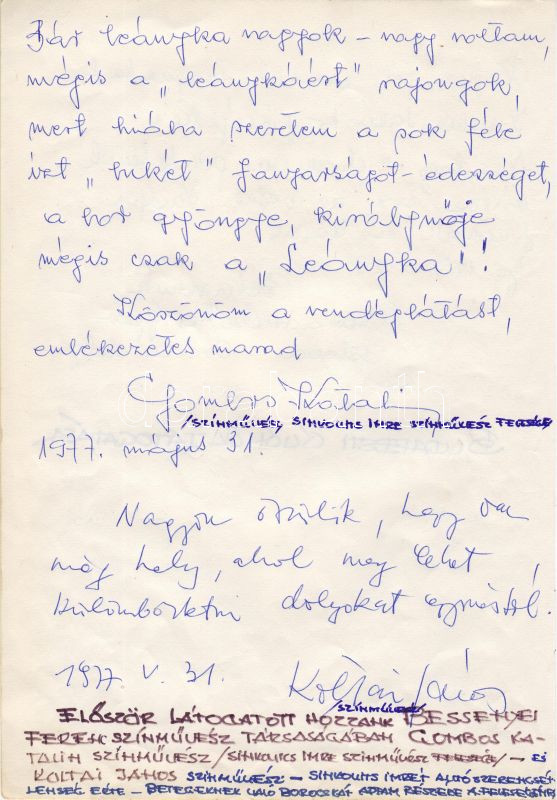 Bár leányka nagyok – nagy voltam,
mégis a „leánykáért" rajongok,
mert hiába szeretem a sok féle
ízt „bukét" fanyarságot-édességet,
a bor gyöngye, királynője
mégis csak a „Leányka"!
Köszönöm a vendéglátást,
emlékezetes marad
Gombos Katalin
/SZÍNMŰVÉSZ, SINKOVITS IMRE SZÍNMŰVÉSZ FELESÉGE
1977. május 31.
Nagyon örülök, hogy van
még hely, ahol meg lehet
különböztetni dolgokat egymástól.
1977. V. 31.
Koltai János
/SZÍNMŰVÉSZ/
ELŐSZÖR LÁTOGATOTT HOZZÁNK BESSENYEI
FERENC SZÍNMŰVÉSZ TÁRSASÁGÁBAN GOMBOS KA-
TALIN SZÍNMŰVÉSZ/SINKOVITS IMRE SZÍNMŰVÉSZ FELESÉGE/ – ÉS
KOLTAI JÁNOS SZÍNMŰVÉSZ – SINKOVITS IMRÉT AUTÓSZERENCSÉT-
LENSÉG ÉRTE – BETEGEKNEK VALÓ BOROCSKÁT ADTAM RÉSZÉRE A FELESÉGÉNEK